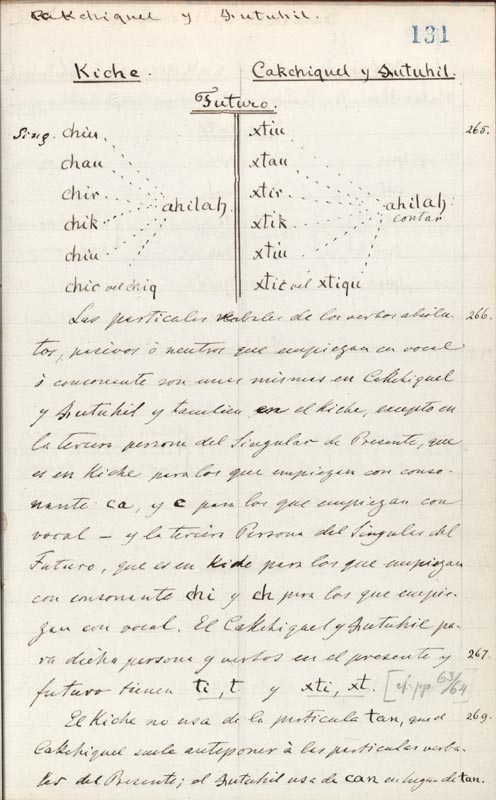 Cakchiquel y Ꜩutuhil.
131
Kiche. Cakchiquel y Ꜩutuhil.
Futuro.
Sing. chiu xtiu 265.
chau xtau
chir xtir
ahilah. ahilah
chik xtik contar
chiu xtiu
chic vel chiq xtic vel xtiqu
Las particulas verbales de los verbos absolu- 266.
tos, pasivos ò neutros que empiezan en vocal
ò consonante son unas mismas en Cakchiquel
y Ꜩutuhil y tambien en el Kiche, excepto en
la tercera persona del Singular de Presente, que
es en Kiche para los que empiezan con conso-
nante ca, y c para los que empiezan con
vocal — y la tercera Persona del Singular del
Futuro, que es en Kiche para los que empiezan
con consonante chi y ch para los que empie-
zan con vocal. El Cakchiquel y Ꜩutuhil pa-
ra dicha persona y verbos en el presente y 267.
futuro tienen ti, t y xti, xt. [cf. pp. 63/64]
El Kiche no usa de la particula tan, que el 269.
Cakchiquel suele anteponer à las particulas verba-
les del Presente; el Ꜩutuhil usa de can en lugar de tan.